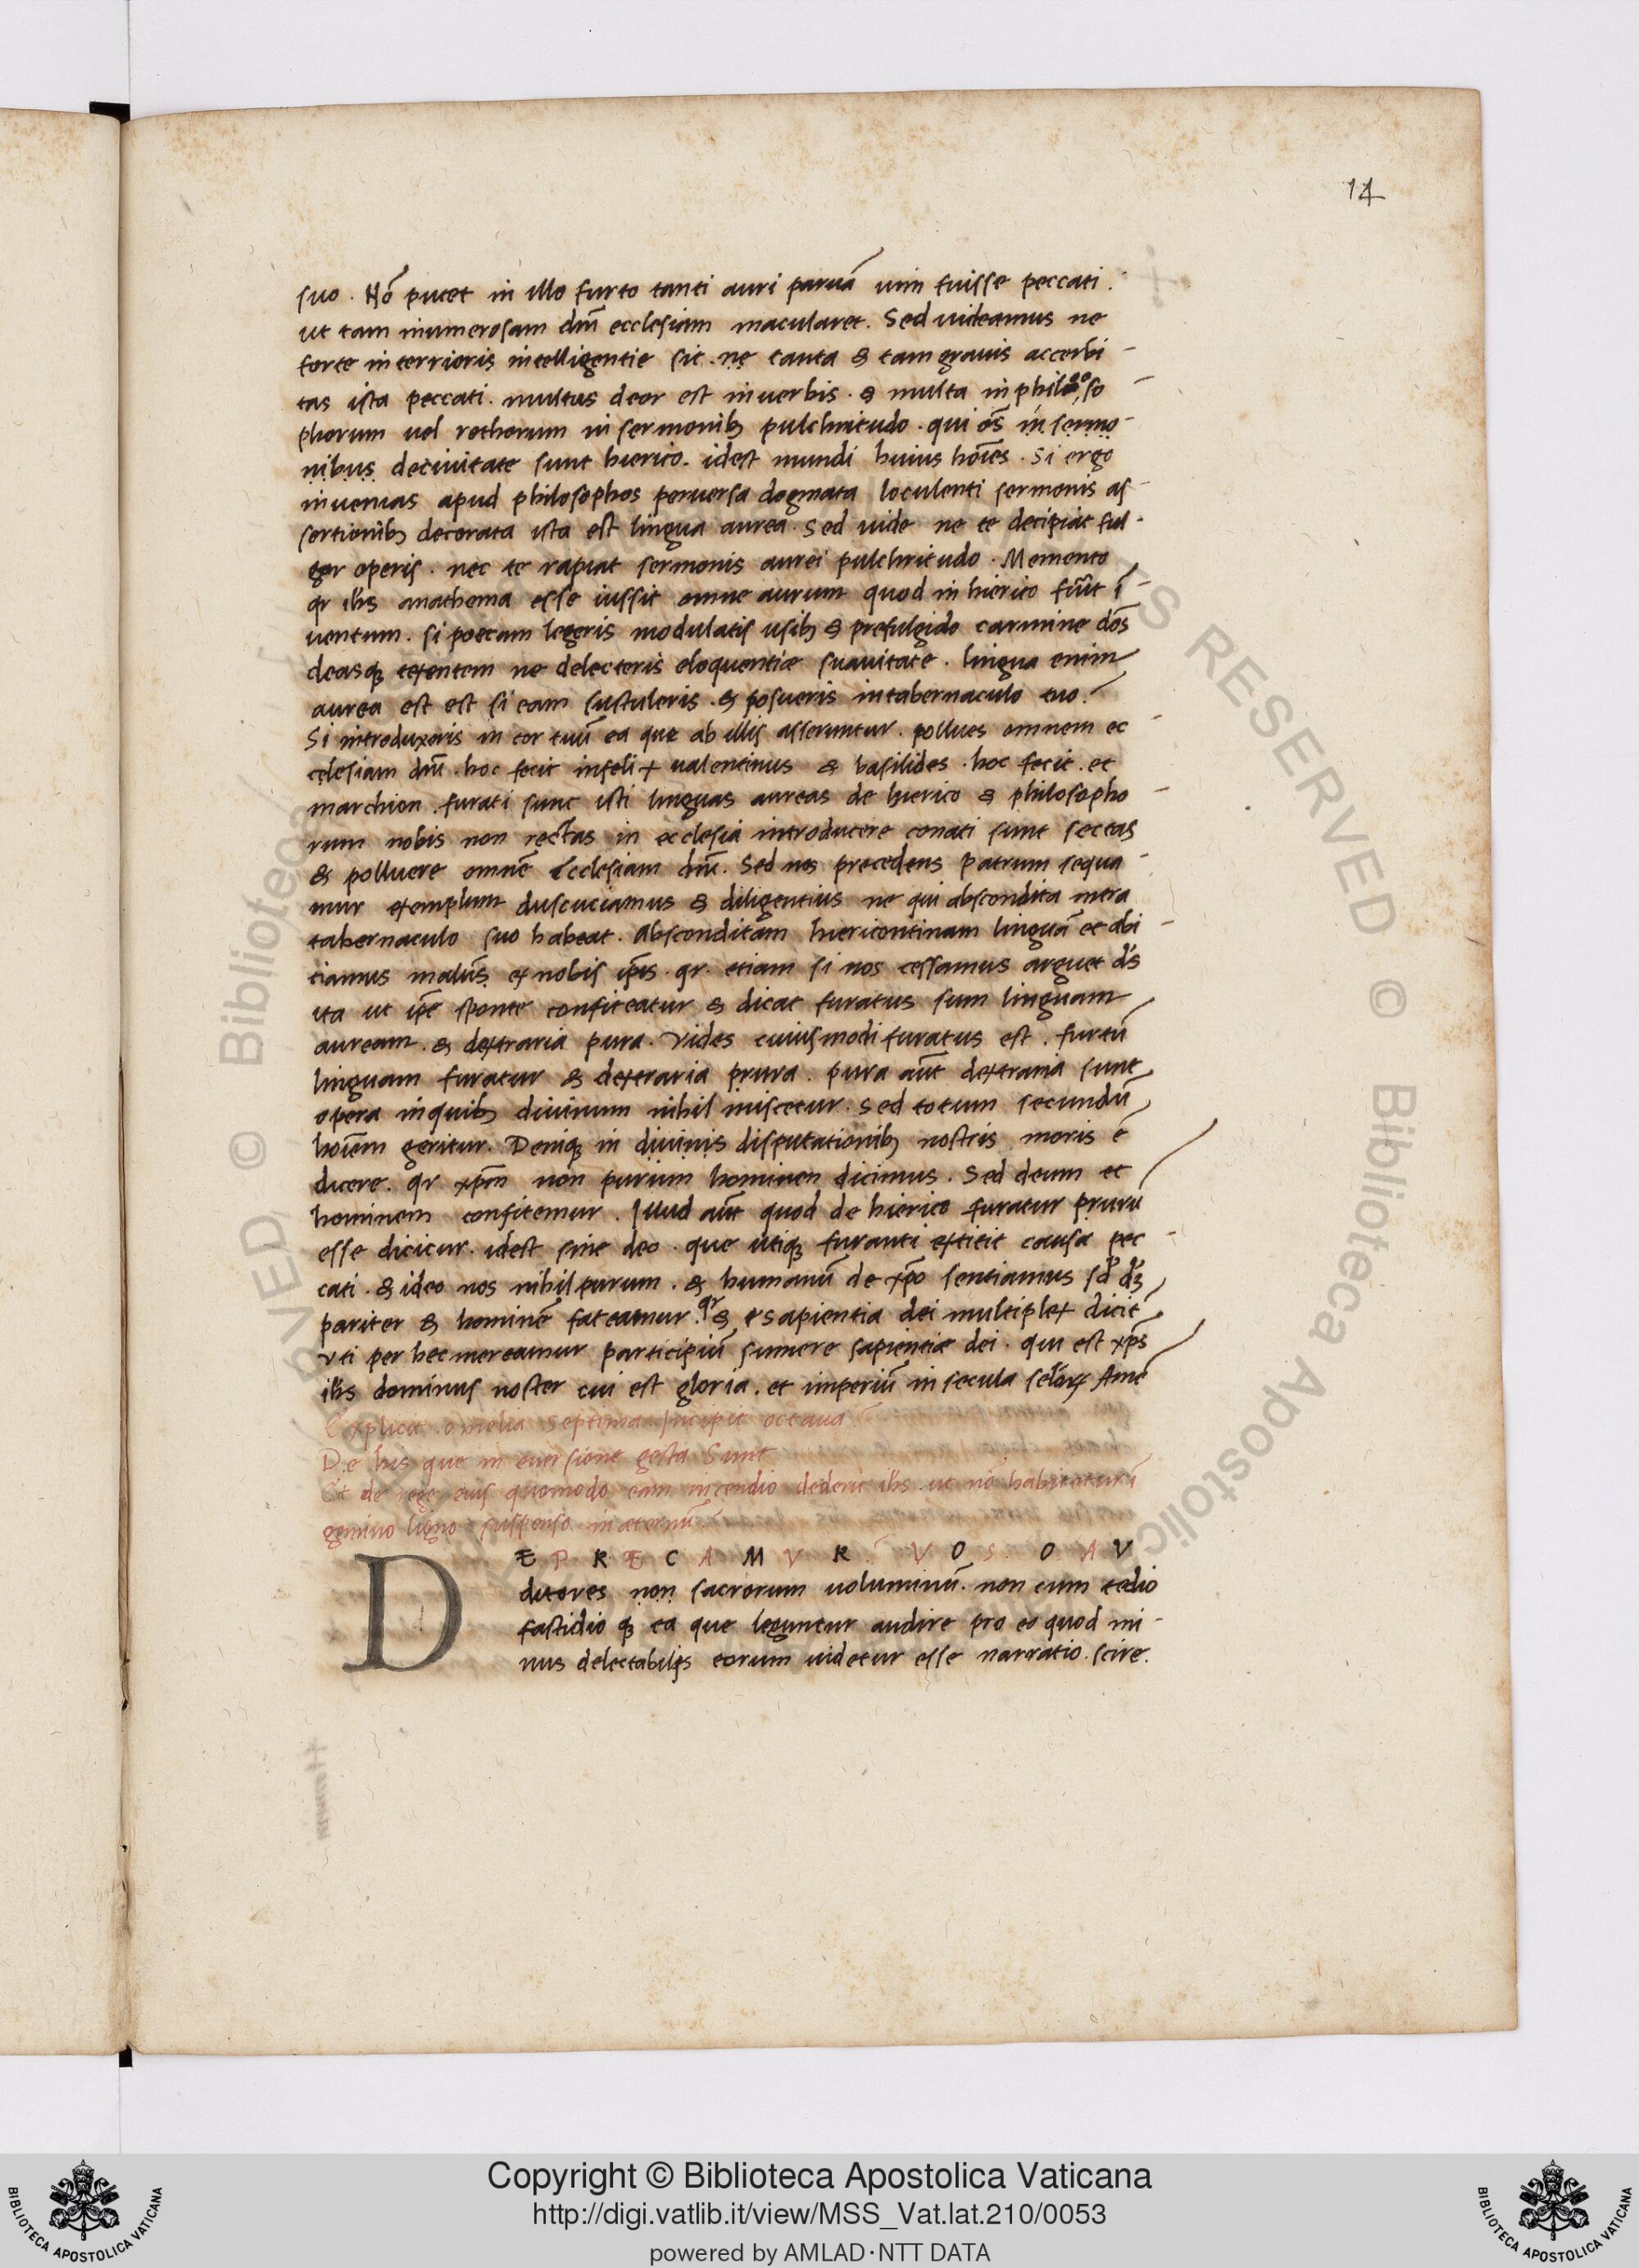 14
suo . Nō putet in illo furto tanti auri paruā uim fuisse peccati .
ut tam inumerosam dnī ecclesiam macularet . Sed uideamus ne
forte in terrioris intelligentie sit . ne tanta & tam grauis accerbi-
tas ista peccati . multus dcor est in uerbis . & multa in philoso
phorum uel rethorum in sermonibꝫ pulchritudo . qui oēs in sermo-
nibus deciuitate sunt hierico . idest mundi huius hoīes . Si ergo
inuenias apud philosophos peruersa dogmata loculenti sermonis as-
sertionibꝫ decorata ista est lingua aurea . Sed uide ne te decipiat ful-
gor operis . nec te rapiat sermonis aurei pulchritudo . Memento
qr ihs anathema esse iussit omne aurum quod in hierico fuit ī-
uentum . si poetam legeris modulatis usibꝫ & prefulgido carmine deos
deasqꝫ texentem ne delecteris eloquentiæ suauitate . lingua enim
aurea est est si eam sustuleris . & posueris in tabernaculo tuo .
Si introduxeris in cor tuū ea que ab illis asseruntur . pollues omnem ec-
celesiam dnī . hoc fecit infelix ualentinus & basilides . hoc fecit . et
marchion . furati sunt isti linguas aureas de hierico & philosopho-
rum nobis non rectas in ecclesia introducere conati sunt sectas
& polluere omnē Ecclesiam dnī . Sed nos precedens patrum sequa-
mur exemplum duscuciamus & diligentius ne qui abscondita intra
tabernaculo suo habeat . absconditam hiericontinam linguā et abi-
ciamus malūs ex nobis ipīs . qr . etiam si nos cessamus arguet ds
ita ut ipē sponte confiteatur & dicat furatus sum linguam
auream . & dextraria pura . Vides cuiusmodi furatus est . furtū
linguam furatur & dexteraria prura . pura aūt dextraria sunt
opera in quibꝫ diuinum nihil miscetur . sed totum secundū
hoīem geritur . Deniqꝫ in diuinis disputationibꝫ nostris moris ē
dicere . qr xpm non purum hominen dicimus . Sed deum et
hominem confitemur . Illud aūt quod de hierico furatur prurū
esse dicicur . idest sine deo . que utiqꝫ furanti extitit causa pec-
cati . & ideo nos nihil purum . & humanū de xpo sentiamus sd ds
pariter & hominē fateamur . qr & e sapientia dei multiplex dicit
vti per hec mereamur participiū sumere sapientiæ dei . qui est xps
ihs dominus noster cui est gloria . et imperiū in secula seclorꝝ Amē
Explicit omelia septima . Incipit octaua
De his que in euersione gesta Sunt
Et de rege eius quomodo eam incendio dederit ihs . ut nō habitetur ī
gemino ligno suspenso in æternū .
DEPRECAMUR . VOS . O . AV
ditores non sacrorum uoluminū . non cum tedio
fastidio qꝫ ea que leguntur audire pro eo quod mi-
nus delectabilis eorum uidetur esse narratio . scire .
© Biblioteca Apostolica
RESERVED © Biblioteca Apostolica
Copyright © Biblioteca Apostolica Vaticana
http://digi.vatlib.it/view/MSS_Vat.lat.210/0053
powered by AMLAD·NTT DATA
BIBLIOTECA APOSTOLICA VATICANA
BIBLIOTECA APOSTOLICA VATICANA